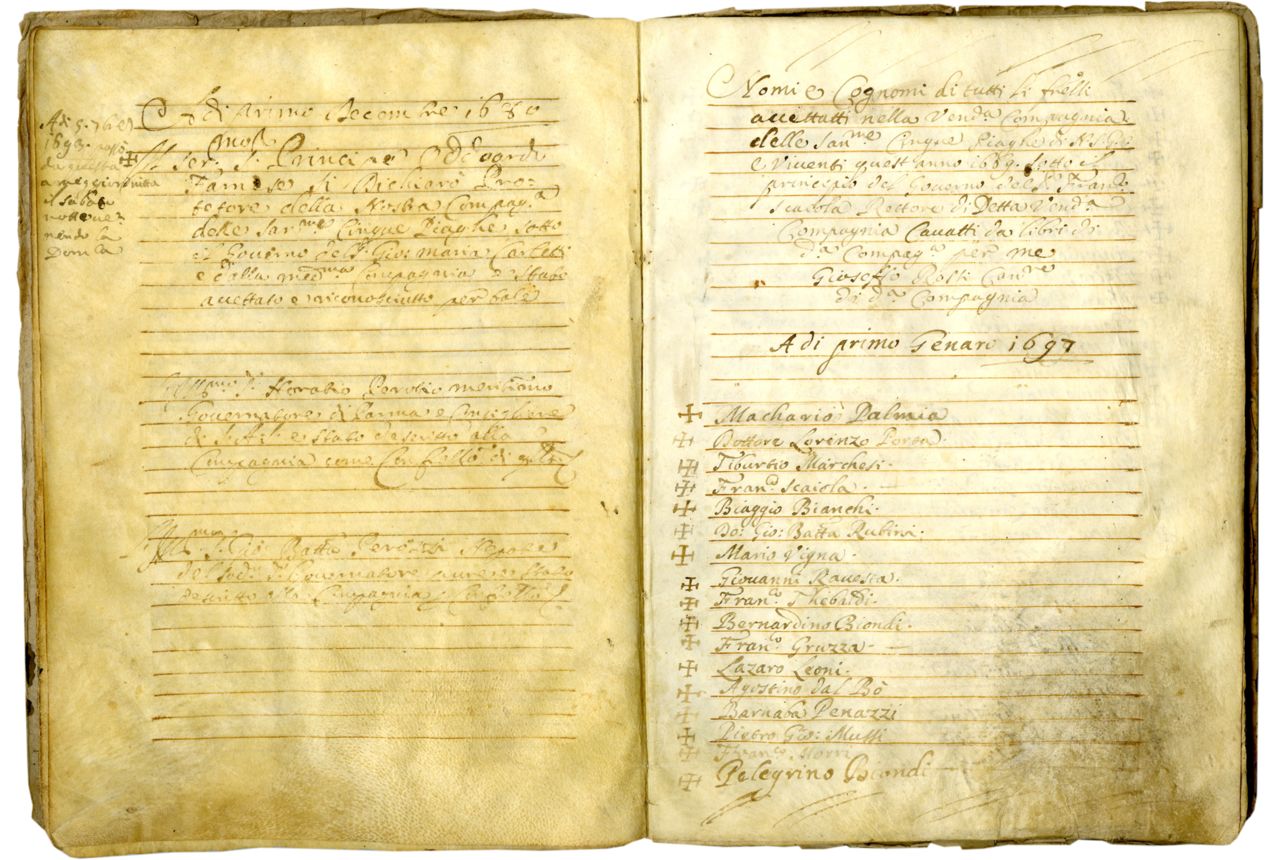 Adi 5. 7bre
1693.
da questa
a meglior vitta
il sabato
notte
nendo la
Domca
Adi Primo Decembre 1680
Il Sermo Sr Principe Odoardo
Farnese si dichiarò Pro-
tetore della Nostra Compaga
delle Sanme Cinque Piaghe sotto
il Governo del Sr Gio: Maria Carletti
e dalla medma Compagnia è stato
accettato e riconosciutto per tale
Illmo Sr Horatio
Governatore di Parma e Consigliere
di S. A. S. è stato descritto alla
Compagnia come Confrello di
Illmo Sr Gio: Batta Nepote
del sodo Sr Governatore pure è stato
descritto alla Compagnia
Nomi e Cognomi di tutti li frelli
accettatti nella Venda Compagnia
delle Sanme Cinque Piaghe di N. S. G. C.
e Viventi quest'anno 1689. sotto il
principio del Governo del Sr Franco
Scaiola Rettore di Detta Venda
Compagnia Cavatti da libri di
da Compaga per me
Gioseffo Rossi Canre
di da Compagnia
A di primo Genaro 1697
Machario Palmia
Dottore Lorenzo Porta
Tiburtio Marchesi.
Franco Scaiola.
Biaggio Bianchi.
Do: Gio: Batta Rubini.
Mario Vigna.
Giovanni Ravesta.
Franco Thebaldi.
Bernardino Biondi.
Franco Gruzza.
Lazaro Leoni.
Agostino dal Bò
Barnaba Penazzi
Pietro Gio: Mussi
Franco Morri
Pelegrino Biondi